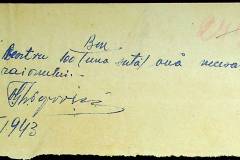 Bon
Pentru 100 (una sută) ouă necesa
raionului.
1943